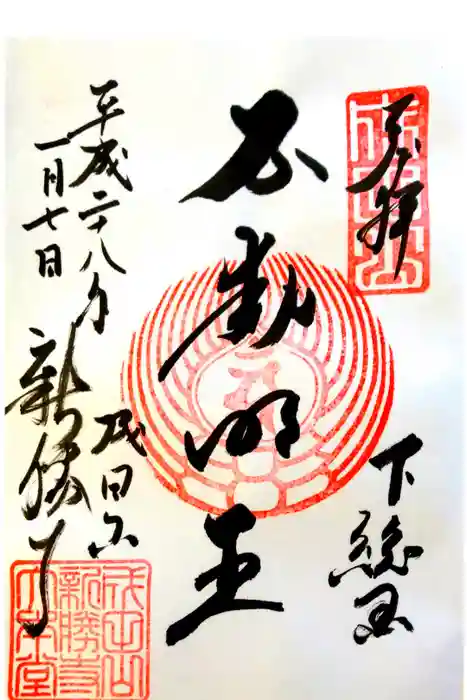 奉拝
成田山
下総国
不動明王
平成二十八年
一月七日
成田山
新勝寺
成田山
新勝寺
大本堂